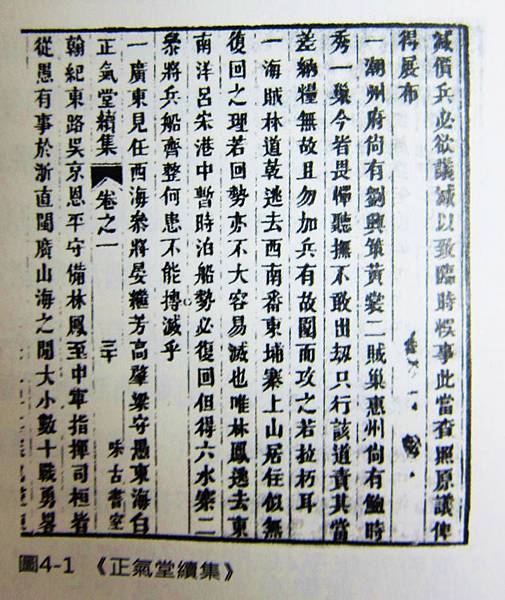 減價兵必欲議減以致臨時悞事此當查照原議俾
得展布
一潮州府尙有劉興策黃裳二賊巢惠州尙有鮑時
秀一巢今皆畏憚聽撫不敢出刼只行該道責其當
差納糧無故且勿加兵有故圍而攻之若拉朽耳
一海賊林道乾逃去西南番東埔寨上山居住似無
復回之理若回勢亦不大容易滅也唯林鳳逃去東
南洋呂宋港中暫時泊船勢必復回但得六水寨二
叅將兵船齊整何患不能擣滅乎
一廣東見任西海叅將晏繼芳高肇梁守愚東海白
正氣堂續集 卷之一 三十 味古書室
翰紀東路吳京恩平守備林鳳至中軍指揮司桓皆
從愚有事於浙直閩廣山海之間大小數十戰勇畧
圖4-1 《正氣堂續集》